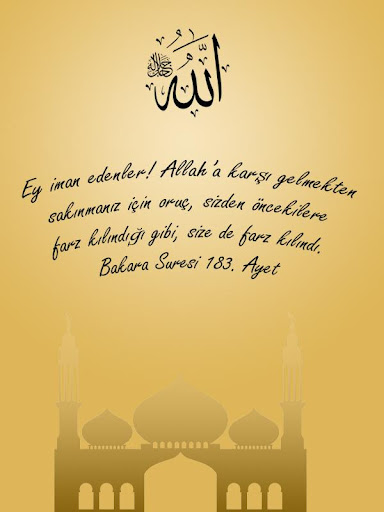 الله جل جلاله
Ey iman edenler! Allah'a karşı gelmekten
sakınmanız için oruç, sizden öncekilere
farz kılındığı gibi, size de farz kılındı.
Bakara Suresi 183. Ayet